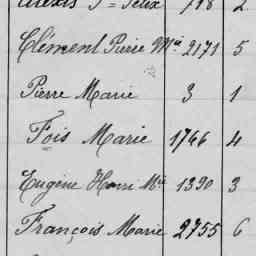 Alexis Jn Félix 718 2
Clément Pierre Mie 2171 5
Pierre Marie 3 1
Fois Marie 1766 4
Eugène Henri Mie 1390 3
François Marie 2755 6